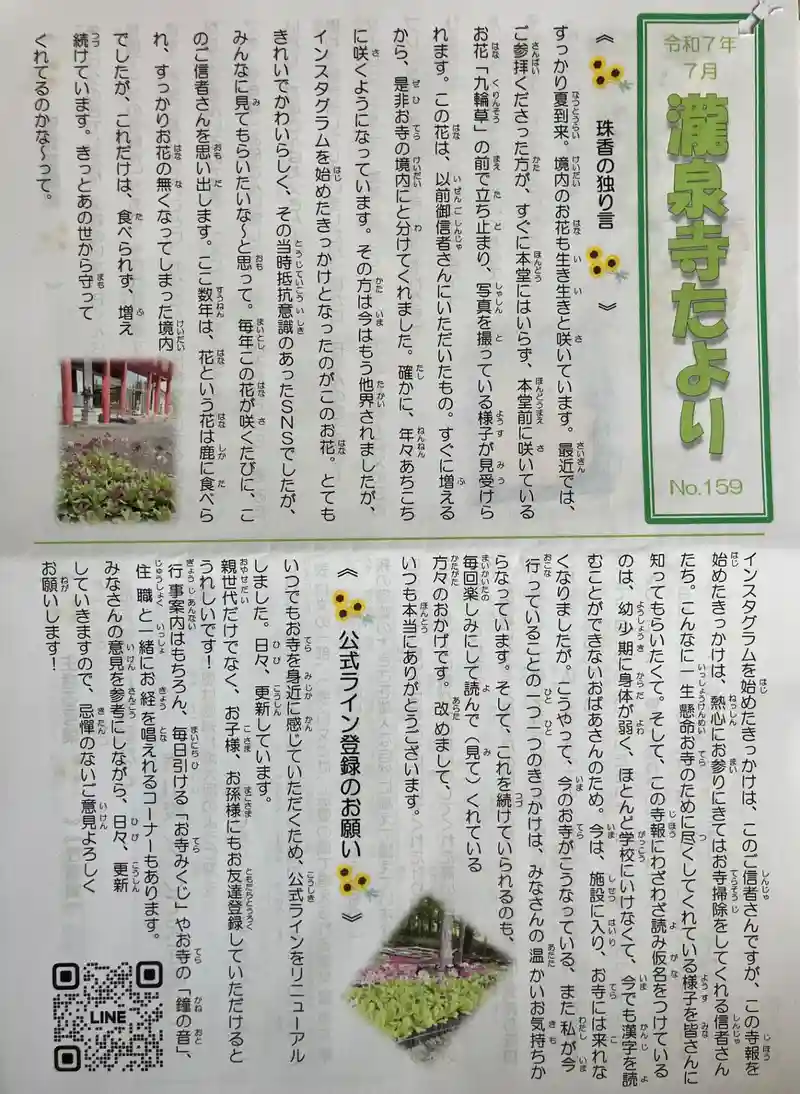 令和7年
7月
瀧泉寺だより
No.159
《 珠香の独り言 》
すっかり夏到来。境内のお花も生き生きと咲いています。最近では、
ご参拝くださった方が、すぐに本堂にはいらず、本堂前に咲いている
お花「九輪草」の前で立ち止まり、写真を撮っている様子が見受けら
れます。この花は、以前御信者さんにいただいたもの。すぐに増える
から、是非お寺の境内にと分けてくれました。確かに、年々あちこち
に咲くようになっています。その方は今はもう他界されましたが、
インスタグラムを始めたきっかけとなったのがこのお花。とても
きれいでかわいらしく、その当時抵抗意識のあったSNSでしたが、
みんなに見てもらいたいな～と思って。毎年この花が咲くたびに、こ
のご信者さんを思い出します。ここ数年は、花という花は鹿に食べら
れ、すっかりお花の無くなってしまった境内
でしたが、これだけは、食べられず、増え
続けています。きっとあの世から守って
くれてるのかな～って。
インスタグラムを始めたきっかけは、このご信者さんですが、この寺報を
始めたきっかけは、熱心にお参りにきてはお寺掃除をしてくれる信者さん
たち。こんなに一生懸命お寺のために尽くしてくれている様子を皆さんに
知ってもらいたくて。そして、この寺報にわざわざ読み仮名をつけている
のは、幼少期に身体が弱く、ほとんど学校にいけなくて、今でも漢字を読
むことができないおばあさんのため。今は、施設に入り、お寺には来れな
くなりましたが。こうやって、今のお寺がこうなっている、また私が今
行っていることの一つ一つのきっかけは、みなさんの温かいお気持ちか
らなっています。そして、これを続けていられるのも、
毎回楽しみにして読んで（見て）くれている
方々のおかげです。改めまして、
いつも本当にありがとうございます。
《 公式ライン登録のお願い 》
いつでもお寺を身近に感じていただくため、公式ラインをリニューアル
しました。日々、更新しています。
親世代だけでなく、お子様、お孫様にもお友達登録していただけると
うれしいです！
行事案内はもちろん、毎日引ける「お寺みくじ」やお寺の「鐘の音」、
住職と一緒にお経を唱えれるコーナーもあります。
みなさんの意見を参考にしながら、日々、更新
していきますので、忌憚のないご意見よろしく
お願いします！
LINE